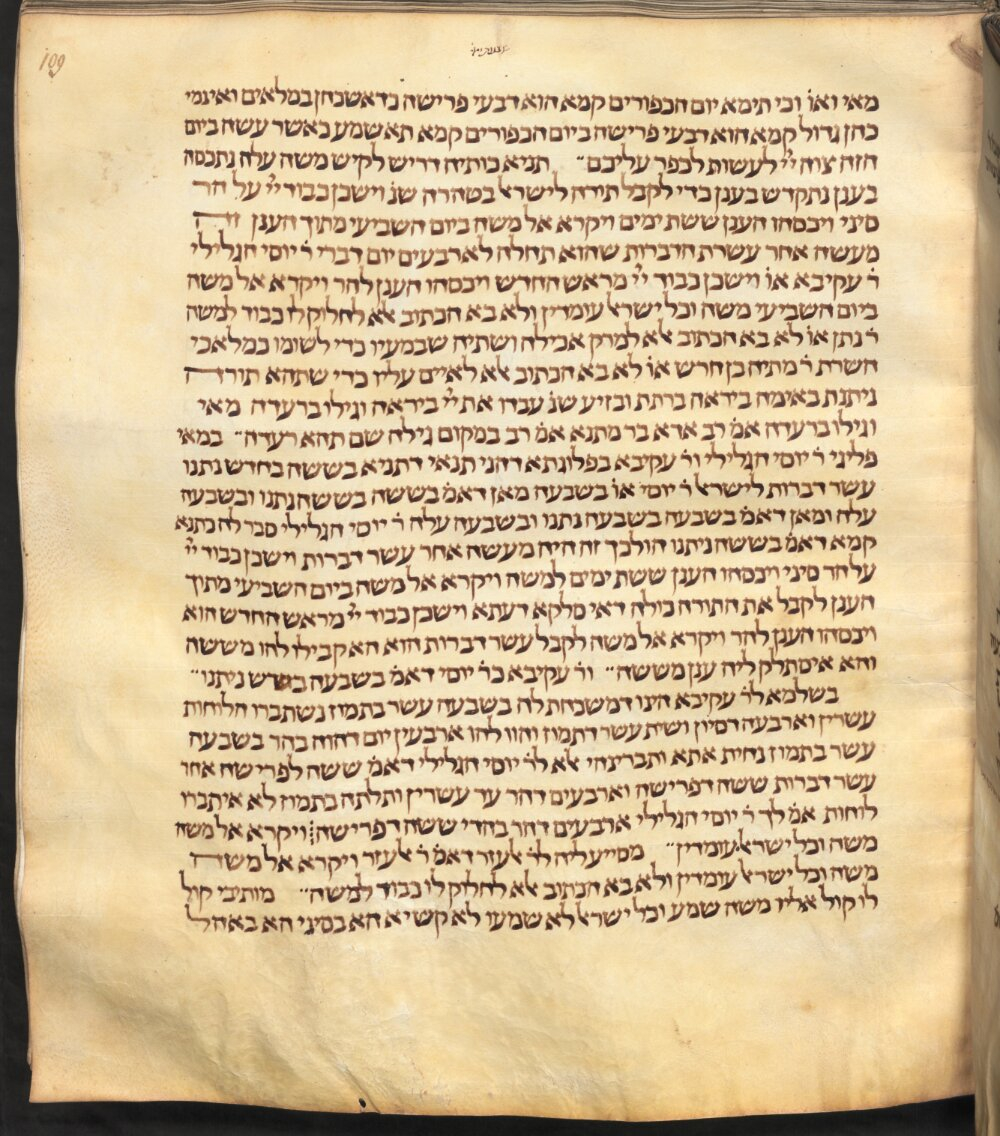 109
מאי ואו׳ וכי תימא יום הכפורים קמא הוא דבעי פרישה כדאשכחן במלאים ואינמי
כהן גדול קמא הוא דבעי פרישה ביום הכפורים קמא תא שמע כאשר עשה ביום
הזה צוה יי׳ לעשות לכפר עליכם״ תניא כותיה דריש לקיש משה עלה נתכסה
בענן נתקדש בענן כדי לקבל תורה לישראל בטהרה שנ׳ וישכן כבוד יי׳ על הר
סיני ויכסהו הענן ששת ימים ויקרא אל משה ביום השביעי מתוך הענן זה
מעשה אחר עשרת הדברות שהוא תחלה לארבעים יום דברי ר׳ יוסי הגלילי
ר׳ עקיבא או׳ וישכן כבוד יי׳ מראש החדש ויכסהו הענן להר ויקרא אל משה
ביום השביעי משה וכל ישראל עומדין ולא בא הכתוב אלא לחלוק לו כבוד למשה
ר׳ נתן או׳ לא בא הכתוב אלא למרק אכילה ושתיה שבמעיו כדי לשומו כמלאכי
השרת ר׳ מתיה בן חרש או׳ לא בא הכתוב אלא לאיים עליו כדי שתהא תורה
ניתנת באימה ביראה ברתת ובזיע שנ׳ עבדו את יי׳ ביראה וגילו ברעדה מאי
וגילו ברעדה אמ׳ רב אדא בר מתנא אמ׳ רב במקום גילה שם תהא רעדה״ במאי
פליגי ר׳ יוסי הגלילי ור׳ עקיבא בפלוגתא דהני תנאי דתניא בששה בחדש נתנו
עשר דברות לישראל ר׳ יוסי או׳ בשבעה מאן דאמ׳ בששה בששה נתנו ובשבעה
עלה ומאן דאמ׳ בשבעה בשבעה נתנו ובשבעה עלה ר׳ יוסי הגלילי סבר לה כתנא
קמא דאמ׳ בששה ניתנו הולכך זה היה מעשה אחר עשר דברות וישכן כבוד יי׳
על הר סיני ויכסהו הענן ששת ימים למשה ויקרא אל משה ביום השביעי מתוך
הענן לקבל את התורה כולה דאי סלקא דעתא וישכן כבוד יי׳ מראש החדש הוא
ויכסהו הענן להר ויקרא אל משה לקבל עשר דברות הוא הא קבילו להו מששה
והא איסתלק ליה ענן מששה״ ור׳ עקיבא כר׳ יוסי דאמ׳ בשבעה בחדש ניתנו״
בשלמא לר׳ עקיבא היגו דמשכחת לה בשבעה עשר בתמוז נשתברו הלוחות
עשרין וארבעה דסיון ושית עשר דתמוז והוו להו ארבעין יום דהוה בהר בשבעה
עשר בתמוז נחית אתא ותברינהי אלא לר׳ יוסי הגלילי דאמ׳ ששה לפרישה אחר
עשר דברות ששה דפרישה וארבעים דהר עד עשרין ותלתה בתמוז לא איתברו
לוחות אמ׳ לך ר׳ יוסי הגלילי ארבעים דהר בהדי ששה דפרישה ויקרא אל משה
משה וכל ישראל עומדין״ מסייעליה לר׳ אלעזר דאמ׳ ר׳ אלעזר ויקרא אל משה
משה וכל ישראל עומדין ולא בא הכתוב אלא לחלוק לו כבוד למשה״ מותיבי קול
לו קול אליו משה שמע וכל ישראל לא שמעו לא קשיא הא בסיני הא באהל